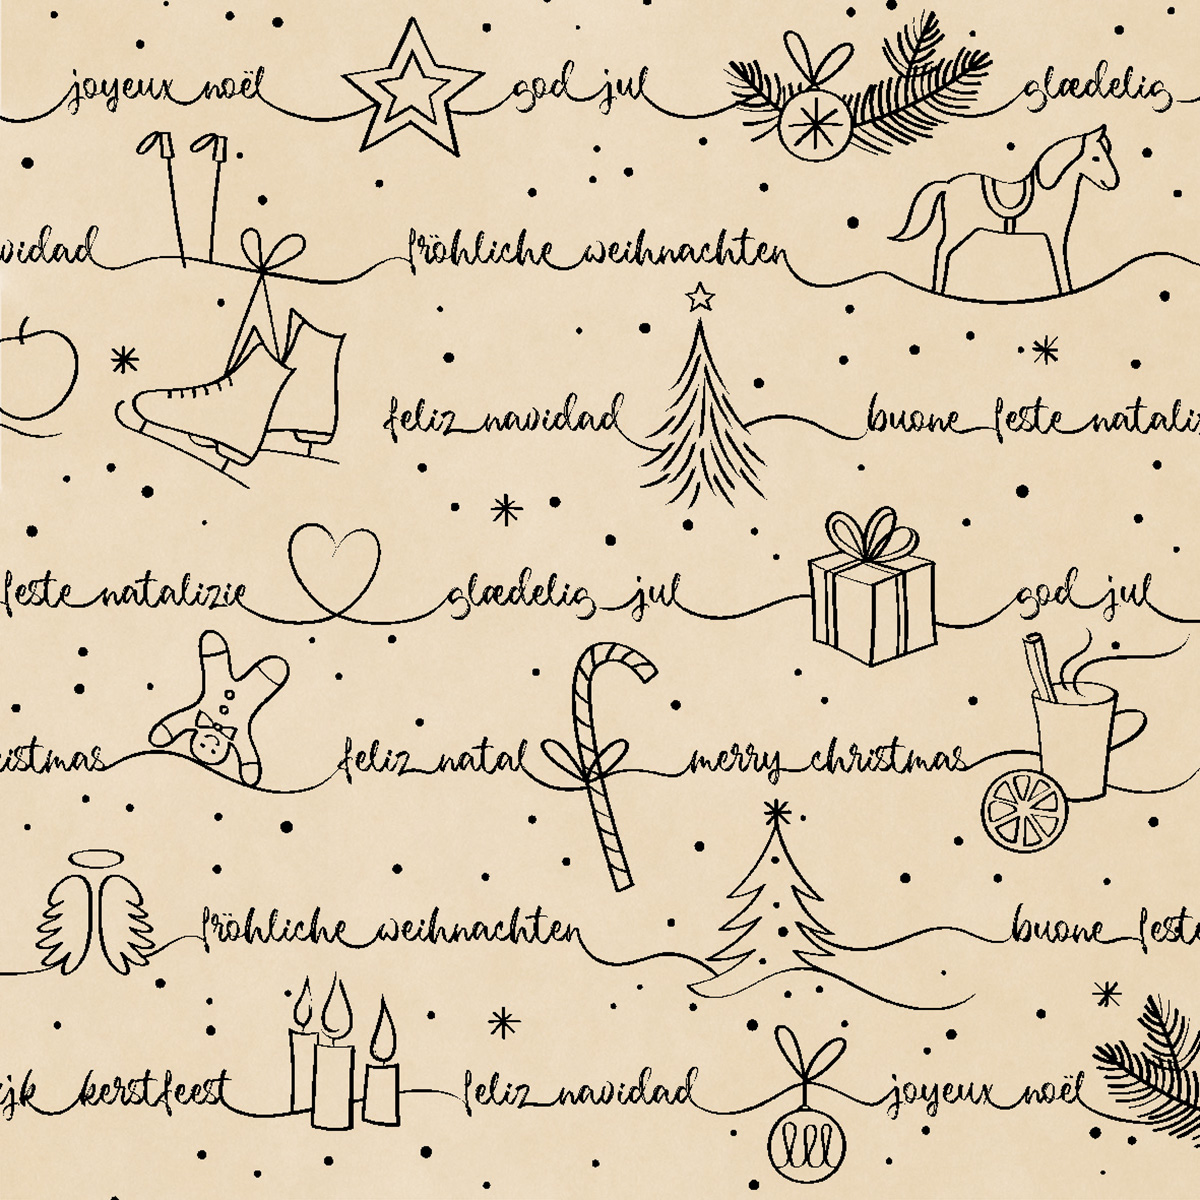 joyeux noël god jul glædelig
vidad fröhliche weihnachten
feliz navidad buone feste nataliz
feste natalizie glædelig jul god jul
istmas feliz natal merry christmas
fröhliche weihnachten buone feste
jk kerstfeest feliz navidad joyeux noël